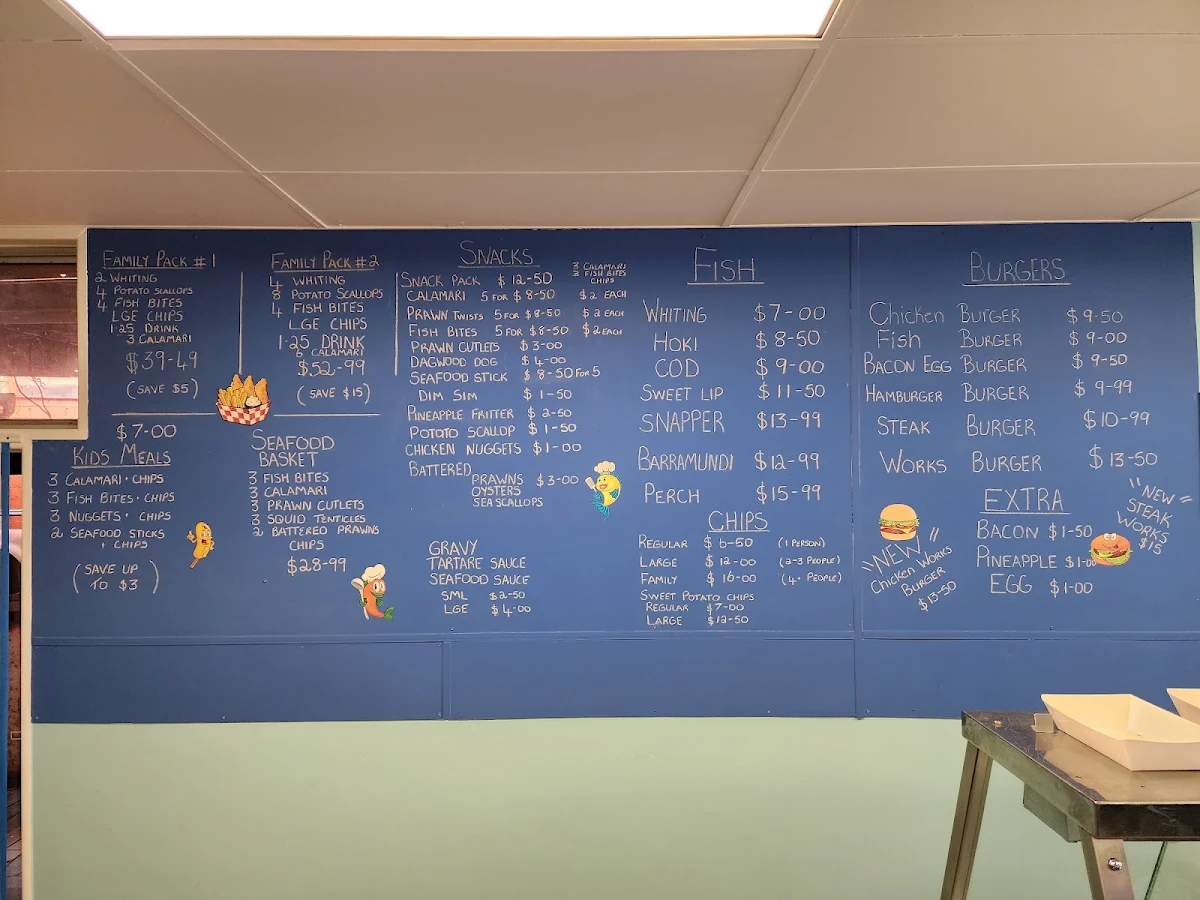 FAMILY PACK #1
2 WHITING
4 POTATO SCALLOPS
4 FISH BITES
LGE CHIPS
1.25 DRINK
3 CALAMARI
$39-49
(SAVE $5)
FAMILY PACK #2
4 WHITING
8 POTATO SCALLOPS
4 FISH BITES
LGE CHIPS
1.25 DRINK
6 CALAMARI
$52-99
(SAVE $15)
$7-00
KIDS MEALS
3 CALAMARI + CHIPS
3 FISH BITES + CHIPS
3 NUGGETS + CHIPS
2 SEAFOOD STICKS
+ CHIPS
(SAVE UP
TO $3)
SEAFOOD
BASKET
3 FISH BITES
3 CALAMARI
3 PRAWN CUTLETS
3 SQUID TENTICLES
2 BATTERED PRAWNS
CHIPS
$28-99
SNACKS
SNACK PACK $12-50 3 CALAMARI
3 FISH BITES
CHIPS
CALAMARI 5 FOR $8-50 $2 EACH
PRAWN TWISTS 5 FOR $8-50 $2 EACH
FISH BITES 5 FOR $8-50 $2 EACH
PRAWN CUTLETS $3-00
DAGWOOD DOG $4-00
SEAFOOD STICK $8-50 FOR 5
DIM SIM $1-50
PINEAPPLE FRITTER $2-50
POTATO SCALLOP $1-50
CHICKEN NUGGETS $1-00
BATTERED PRAWNS $3-00
OYSTERS
SEA SCALLOPS
GRAVY
TARTARE SAUCE
SEAFOOD SAUCE
SML $2-50
LGE $4-00
FISH
WHITING $7-00
HOKI $8-50
COD $9-00
SWEET LIP $11-50
SNAPPER $13-99
BARRAMUNDI $12-99
PERCH $15-99
CHIPS
REGULAR $6-50 (1 PERSON)
LARGE $12-00 (2-3 PEOPLE)
FAMILY $16-00 (4+ PEOPLE)
SWEET POTATO CHIPS
REGULAR $7-00
LARGE $12-50
BURGERS
Chicken BURGER $9-50
Fish BURGER $9-00
BACON EGG BURGER $9-50
HAMBURGER BURGER $9-99
STEAK BURGER $10-99
WORKS BURGER $13-50
EXTRA
BACON $1-50
PINEAPPLE $1-00
EGG $1-00
"NEW"
Chicken WORKS
BURGER
$13-50
"NEW"
STEAK
WORKS
$15